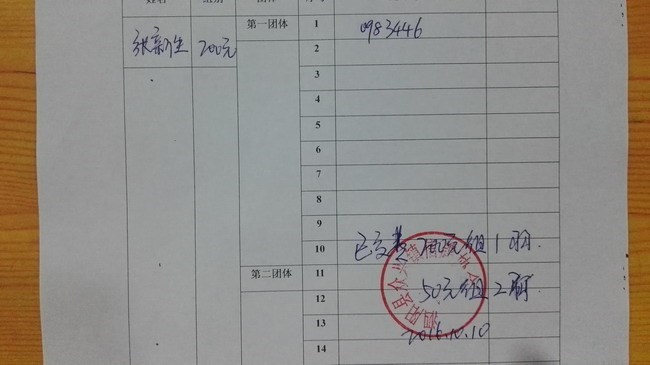 姓名 组别 团体
第一团体 1 0983446
张新生 200元 2
3
4
5
6
7
8
9
10 已交费 200元组1羽.
第二团体 11
12 50元组2羽.
13 2016.10.10
14